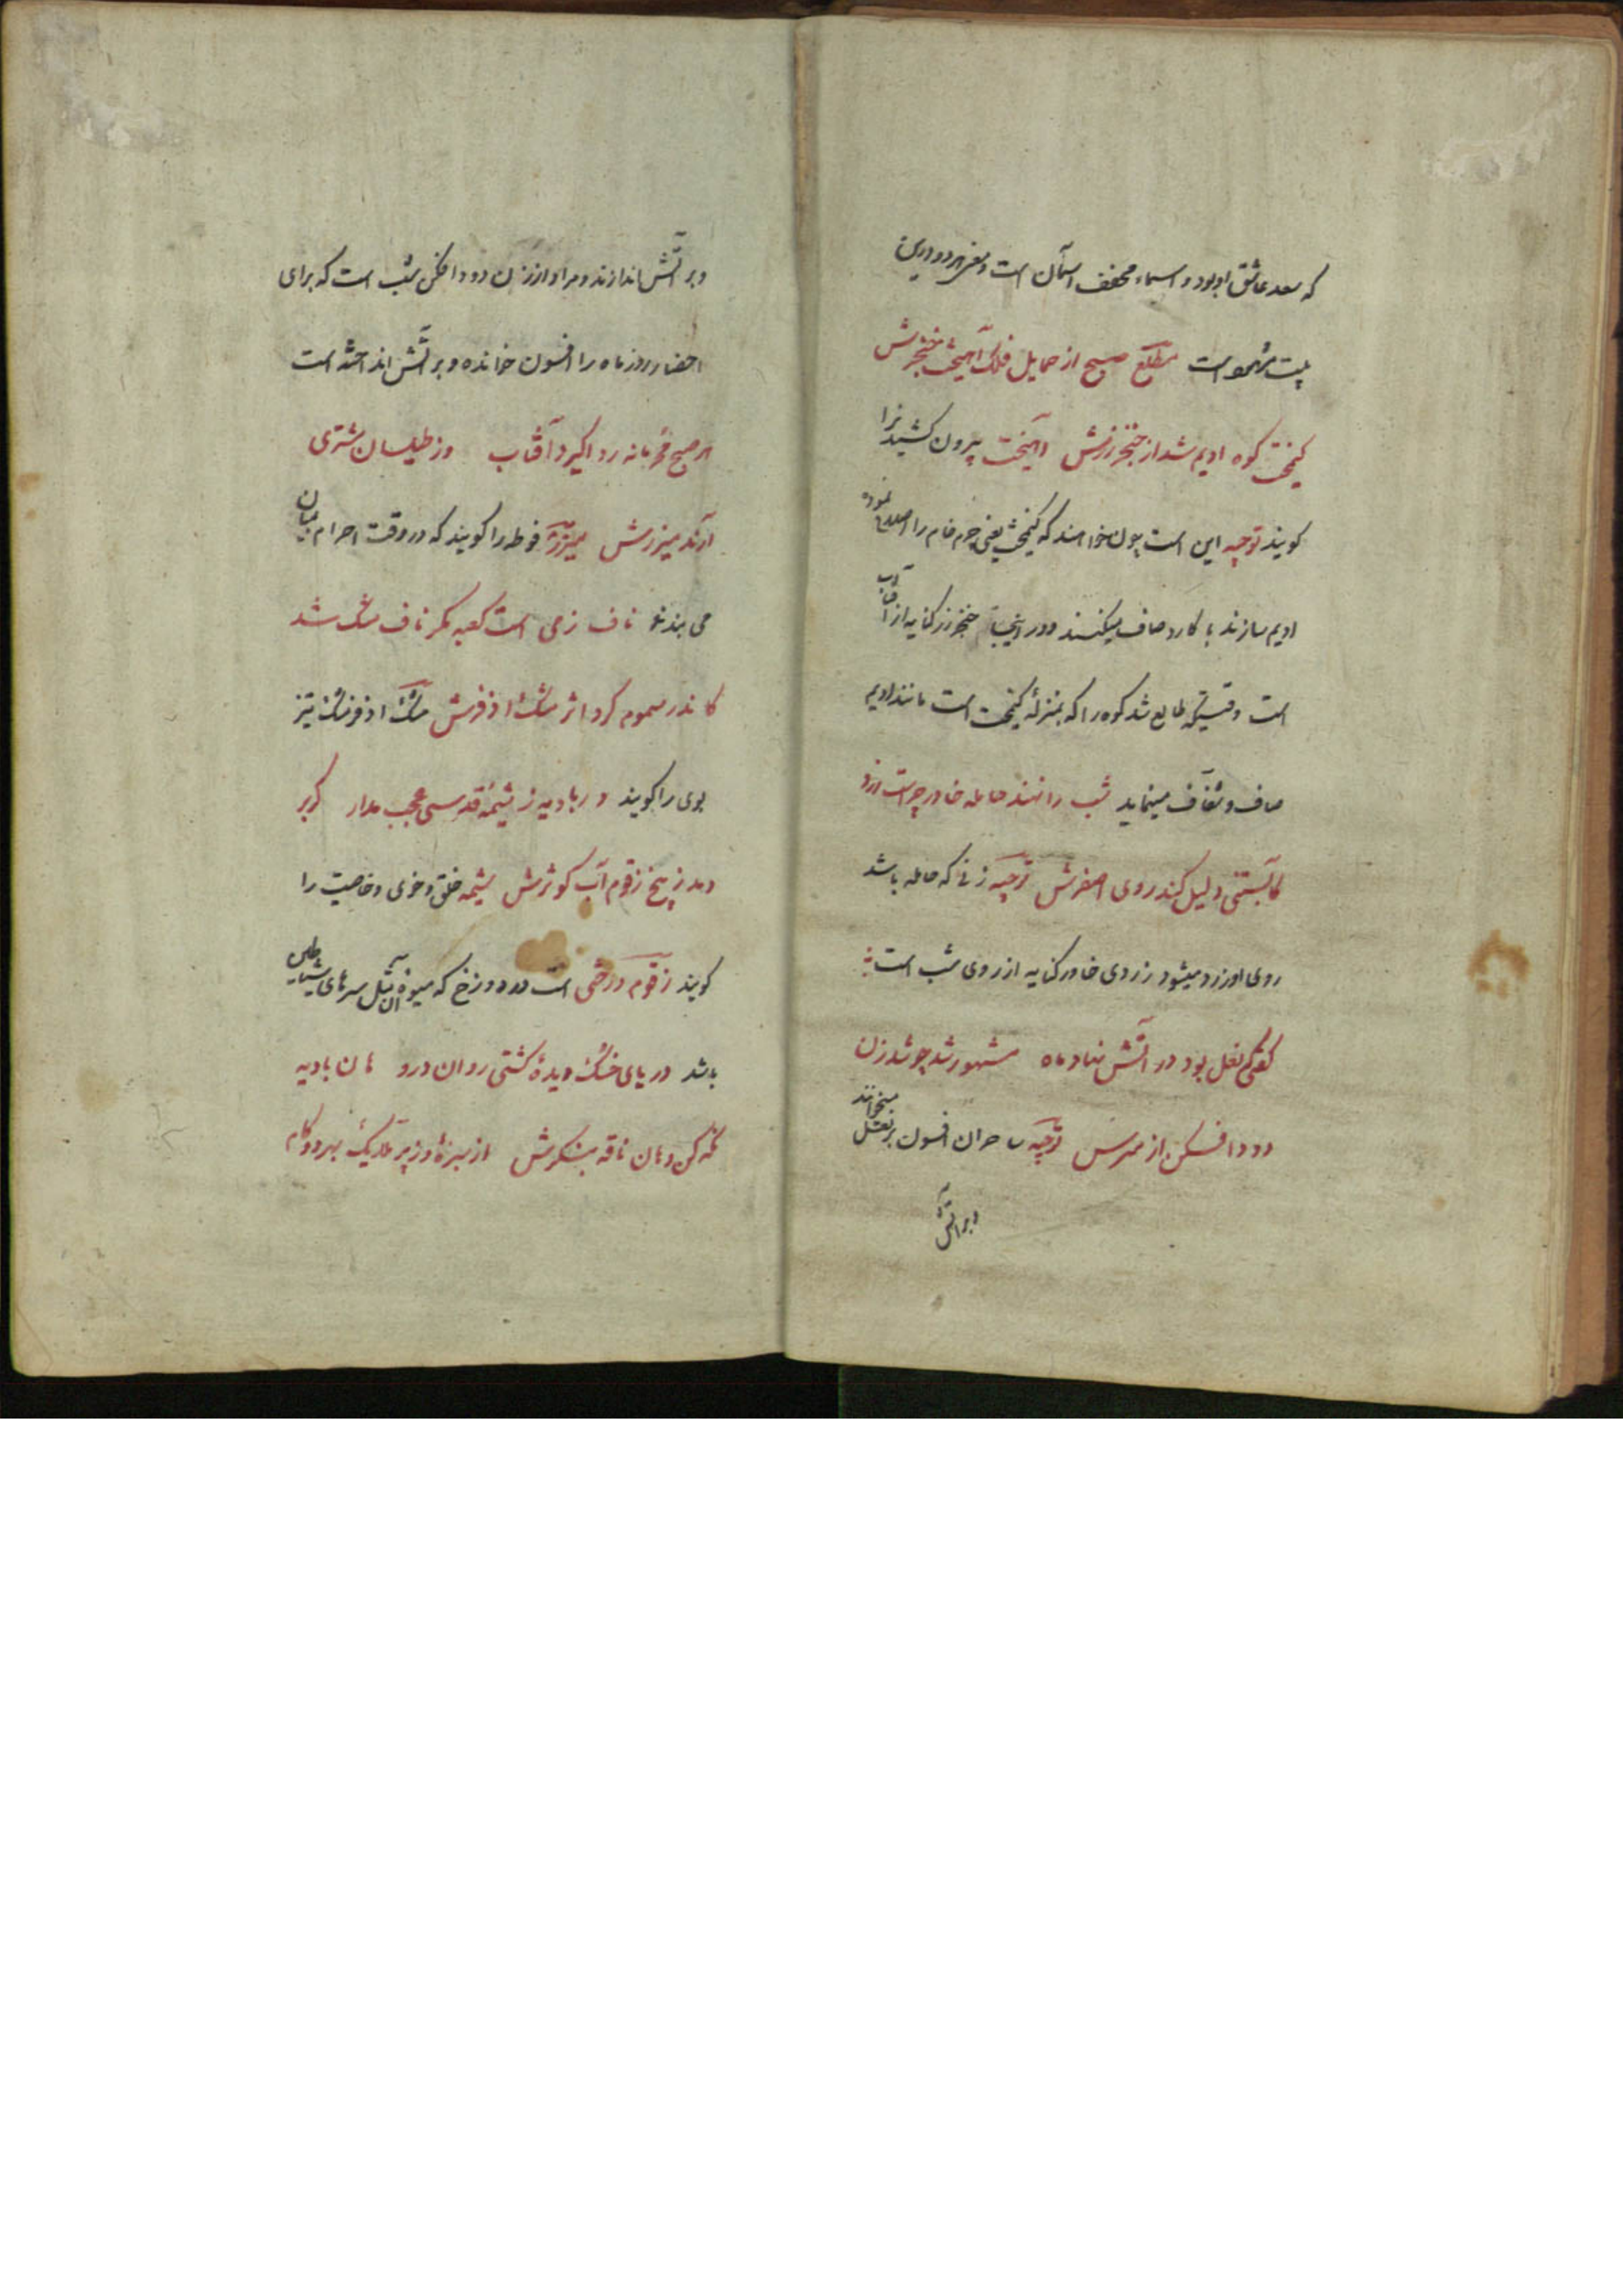 که سعد عاشق او بود و اسماء مخفف اسمآن است و معنی هر دو در این
بیت مشهور است مطلع صبح از حمایل فلک آهیخت خنجرش
کیمخت کوه ادیم شد از خنجر زرش آهیخت بیرون کشید را
کویند توجیه این است چون خواهند که کیمخت یعنی چرم خام را اصلاح نموده
ادیم سازند با کارد صاف میکنند و در اینجا خنجر زر کنایه از آفتاب
است وقتیکه طالع شد کوه را که بمنزلهٔ کیمخت است مانند ادیم
صاف و شفاف مینماید شب را نهند حامله خاور چراست زرد
کآبستنی دلیل کند روی اصفرش توجیه زنی که حامله باشد
روی او زرد میشود زردی خاور کنایه از روی شب است
گفتی که نعل بود در آتش نهاد ماه مشهور شد چو شد زن
دود افکن از برش توجیه ساحران افسون بر نعل میخوانند
و بر آتش
و بر آتش اندازند و مراد از زن دود افکن شب است که برای
احضار روز ماه را افسون خوانده و بر آتش انداخته است
هر صبح محرمانه ردا گیرد آفتاب وز طیلسان مشتری
آرند میزرش میزر فوطه را کویند که در وقت احرام بمیان
می بندند ناف زمی است کعبه مگر ناف مشک شد
کاندر سموم کرد اثر مشک اذفرش مشک اذفر مشک تیز
بوی را کویند در بادیه ز شیمهٔ قدسی عجب مدار گر بر
دمد ز بیخ زقوم آب کوثرش شیمه خلق و خوی و خاصیت را
کویند زقوم درختی است در دوزخ که میوهٔ آن مثل سرهای شیاطین
باشد دریای خشک دیدهٔ کشتی روان درو هان بادیه
نگه کن و هان ناقه بنگرش از سبزه و ز پر ملایک بهر دو گام